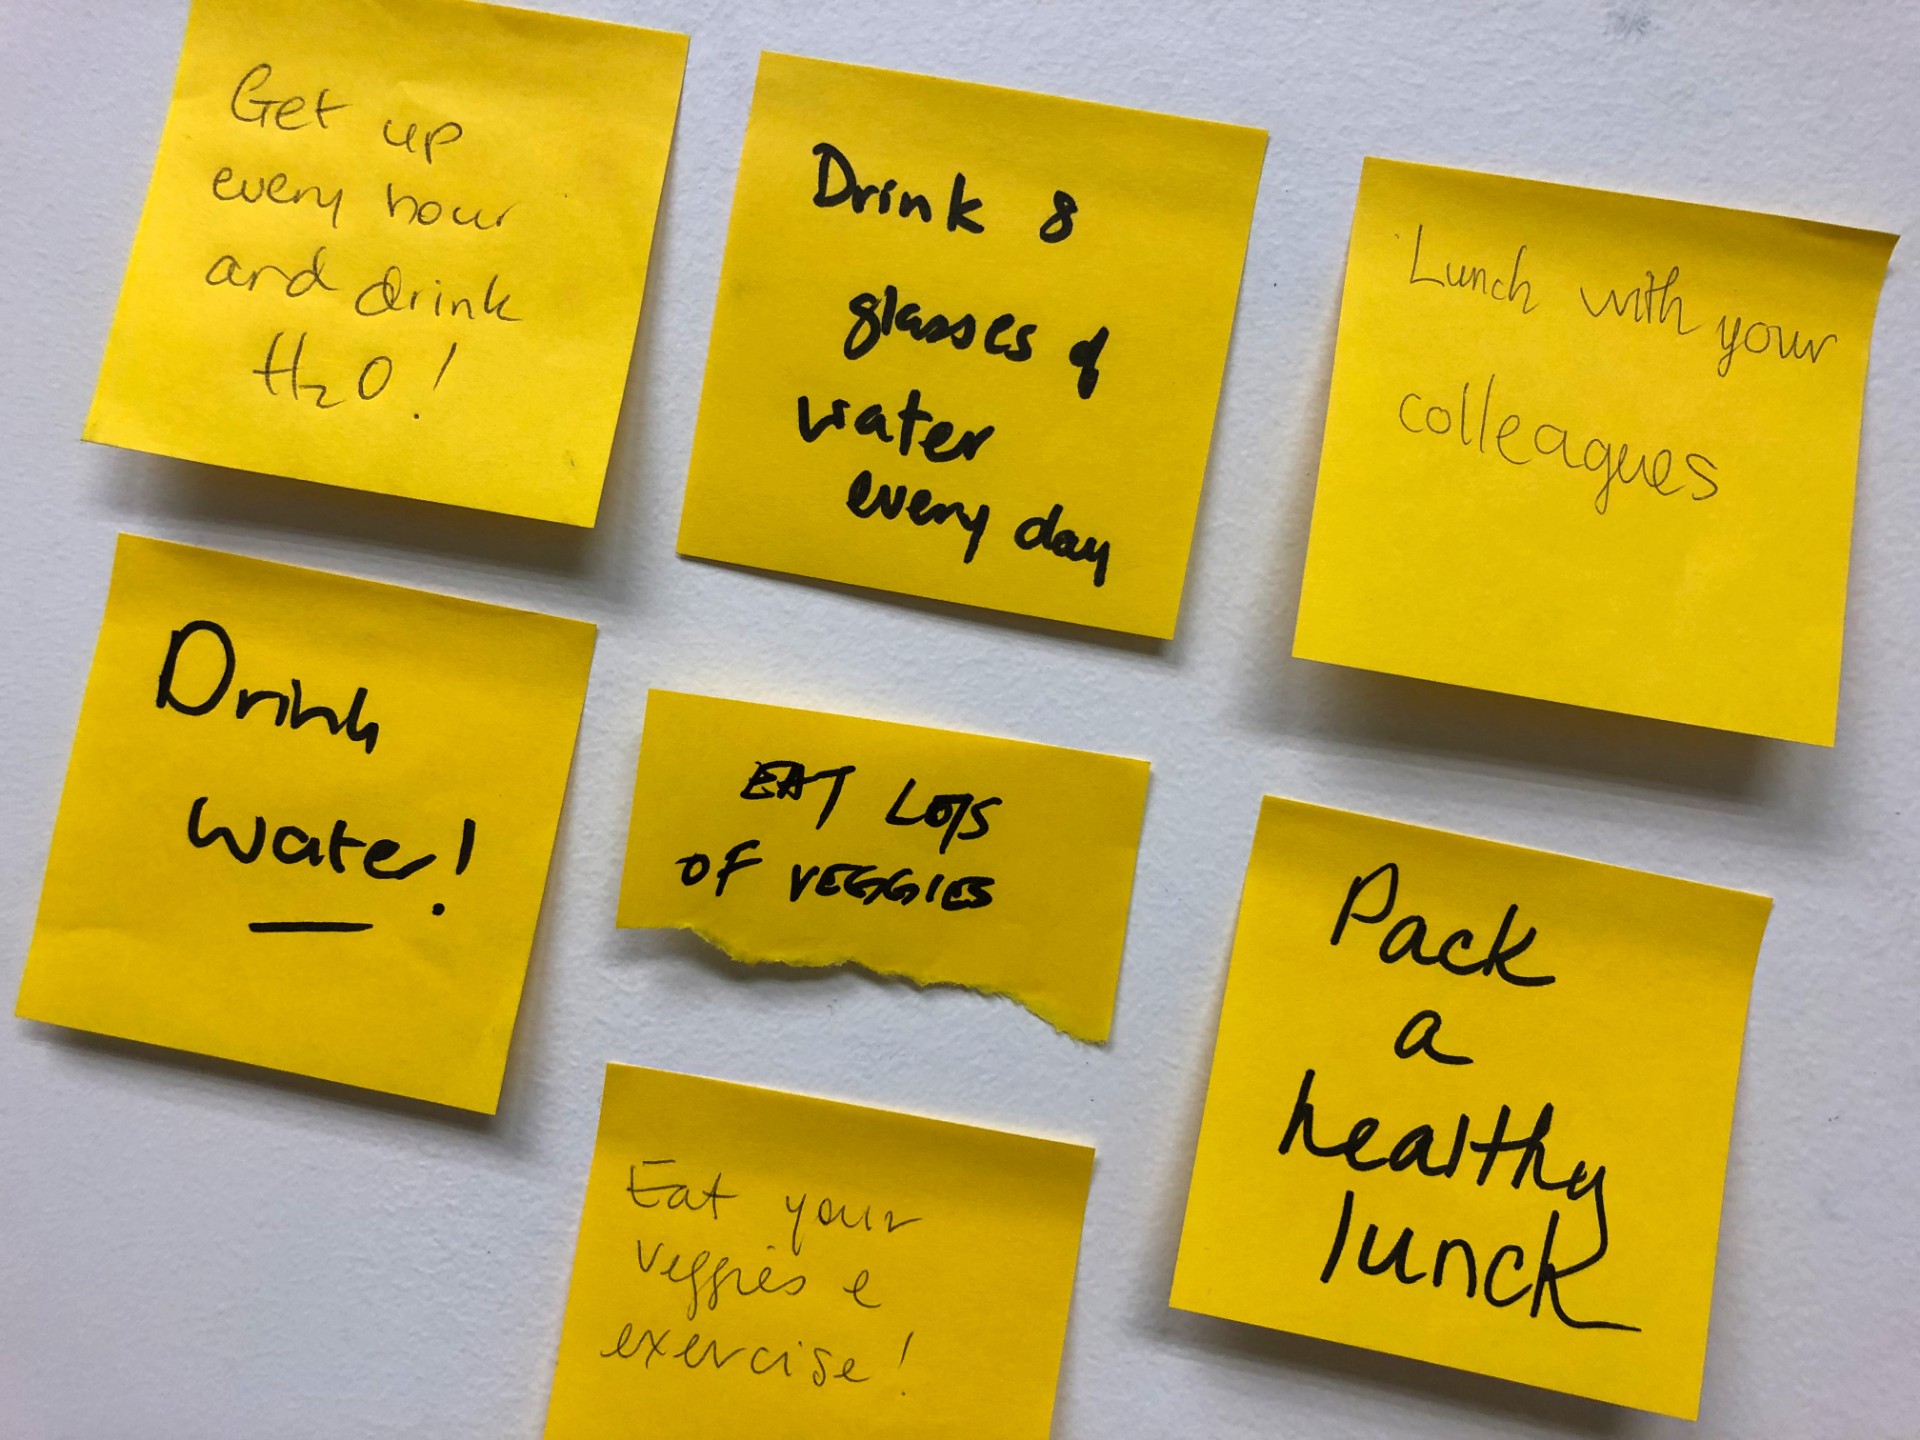 Get up
every hour
and drink
H₂O!
Drink 8
glasses of
water
every day
Lunch with your
colleagues
Drink
water!
EAT LOTS
OF VEGGIES
Pack
a
healthy
lunch
Eat your
veggies e
exercise!